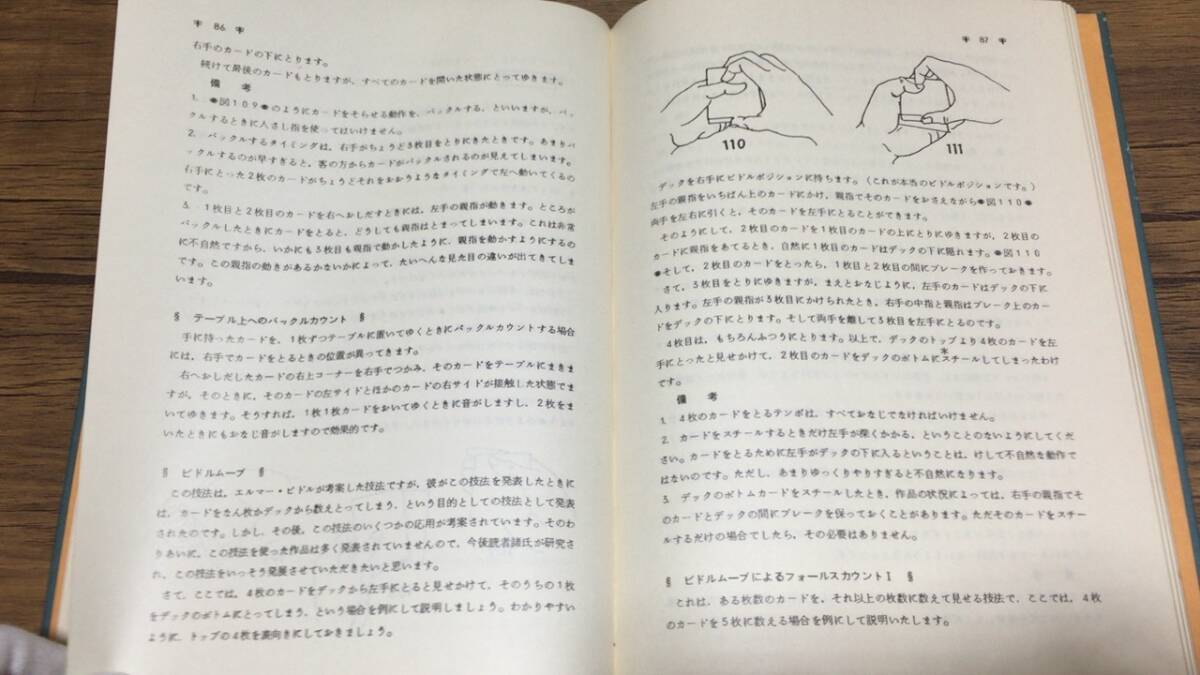 86
右手のカードの下にとります。
続けて最後のカードもとりますが、すべてのカードを開いた状態にとってゆきます。
備考
1. ●図109●のようにカードをそらせる動作を、バックルする、といいますが、バッ
クルするときに人さし指を使ってはいけません。
2. バックルするタイミングは、右手がちょうど3枚目をとりにきたときです。あまりバ
ックルするのが早すぎると、客の方からカードがバックルされるのが見えてしまいます。
右手にとった2枚のカードがちょうどそれをおおうようなタイミングで左へ動いてくるの
です。
3. 1枚目と2枚目のカードを右へおしだすときには、左手の親指が動きます。ところが
バックルしたときにカードをとると、どうしても親指はとまってしまいます。これは非常
に不自然ですから、いかにも3枚目も親指で動かしたように、親指を動かすようにするの
です。この親指の動きがあるかないかによって、たいへんな見た目の違いが出てきてしま
います。
§ テーブル上へのバックルカウント §
手に持ったカードを、1枚ずつテーブルに置いてゆくときにバックルカウントする場合
には、右手でカードをとるときの位置が異ってきます。
右へおしだしたカードの右上コーナーを右手でつかみ、そのカードをテーブルにまきま
すが、そのときに、そのカードの左サイドとほかのカードの右サイドが接触した状態でま
いてゆきます。そうすれば、1枚1枚カードをおいてゆくときに音がしますし、2枚をま
いたときにもおなじ音がしますので効果的です。
§ ビドルムーブ §
この技法は、エルマー・ビドルが考案した技法ですが、彼がこの技法を発表したときに
は、カードをなん枚かデックから数えとってしまう、という目的としての技法として発表
されたのです。しかし、その後、この技法のいくつかの応用が考案されています。そのわ
りあいに、この技法を使った作品は多く発表されていませんので、今後読者諸氏が研究さ
れ、この技法をいっそう発展させていただきたいと思います。
さて、ここでは、4枚のカードをデックから左手にとると見せかけて、そのうちの1枚
をデックのボトムにとってしまう、という場合を例にして説明しましょう。わかりやすい
ように、トップの4枚を裏向きにしておきましょう。
87
110
111
デックを右手にビドルポジションに持ちます。(これが本当のビドルポジションです。)
左手の親指をいちばん上のカードにかけ、親指でそのカードをおさえながら●図110●
両手を左右に引くと、そのカードを左手にとることができます。
そのようにして、2枚目のカードを1枚目のカードの上にとりにゆきますが、2枚目の
カードに親指をあてるとき、自然に1枚目のカードはデックの下に隠れます。●図110
●そして、2枚目のカードをとったら、1枚目と2枚目の間にブレークを作っておきます。
さて、3枚目をとりにゆきますが、まえとおなじように、左手のカードはデックの下に
入ります。左手の親指が3枚目にかけられたとき、右手の中指と親指はブレーク上のカー
ドをデックの下にとります。そして両手を離して3枚目を左手にとるのです。
4枚目は、もちろんふつうにとります。以上で、デックのトップより4枚のカードを左
手にとったと見せかけて、2枚目のカードをデックのボトムにスチールしてしまったわけ
です。
備考
1. 4枚のカードをとるテンポは、すべておなじでなければいけません。
2. カードをスチールするときだけ左手が深くかかる、ということのないようにしてくだ
さい。カードをとるために左手がデックの下に入るということは、けして不自然な動作で
はないのです。ただし、あまりゆっくりやりすぎると不自然になります。
3. デックのボトムカードをスチールしたとき、作品の状況によっては、右手の親指でそ
のカードとデックの間にブレークを保っておくことがあります。ただそのカードをスチー
ルするだけの場合でしたら、その必要はありません。
§ ビドルムーブによるフォールスカウントI §
これは、ある枚数のカードを、それ以上の枚数に数えて見せる技法で、ここでは、4枚
のカードを5枚に数える場合を例にして説明いたします。